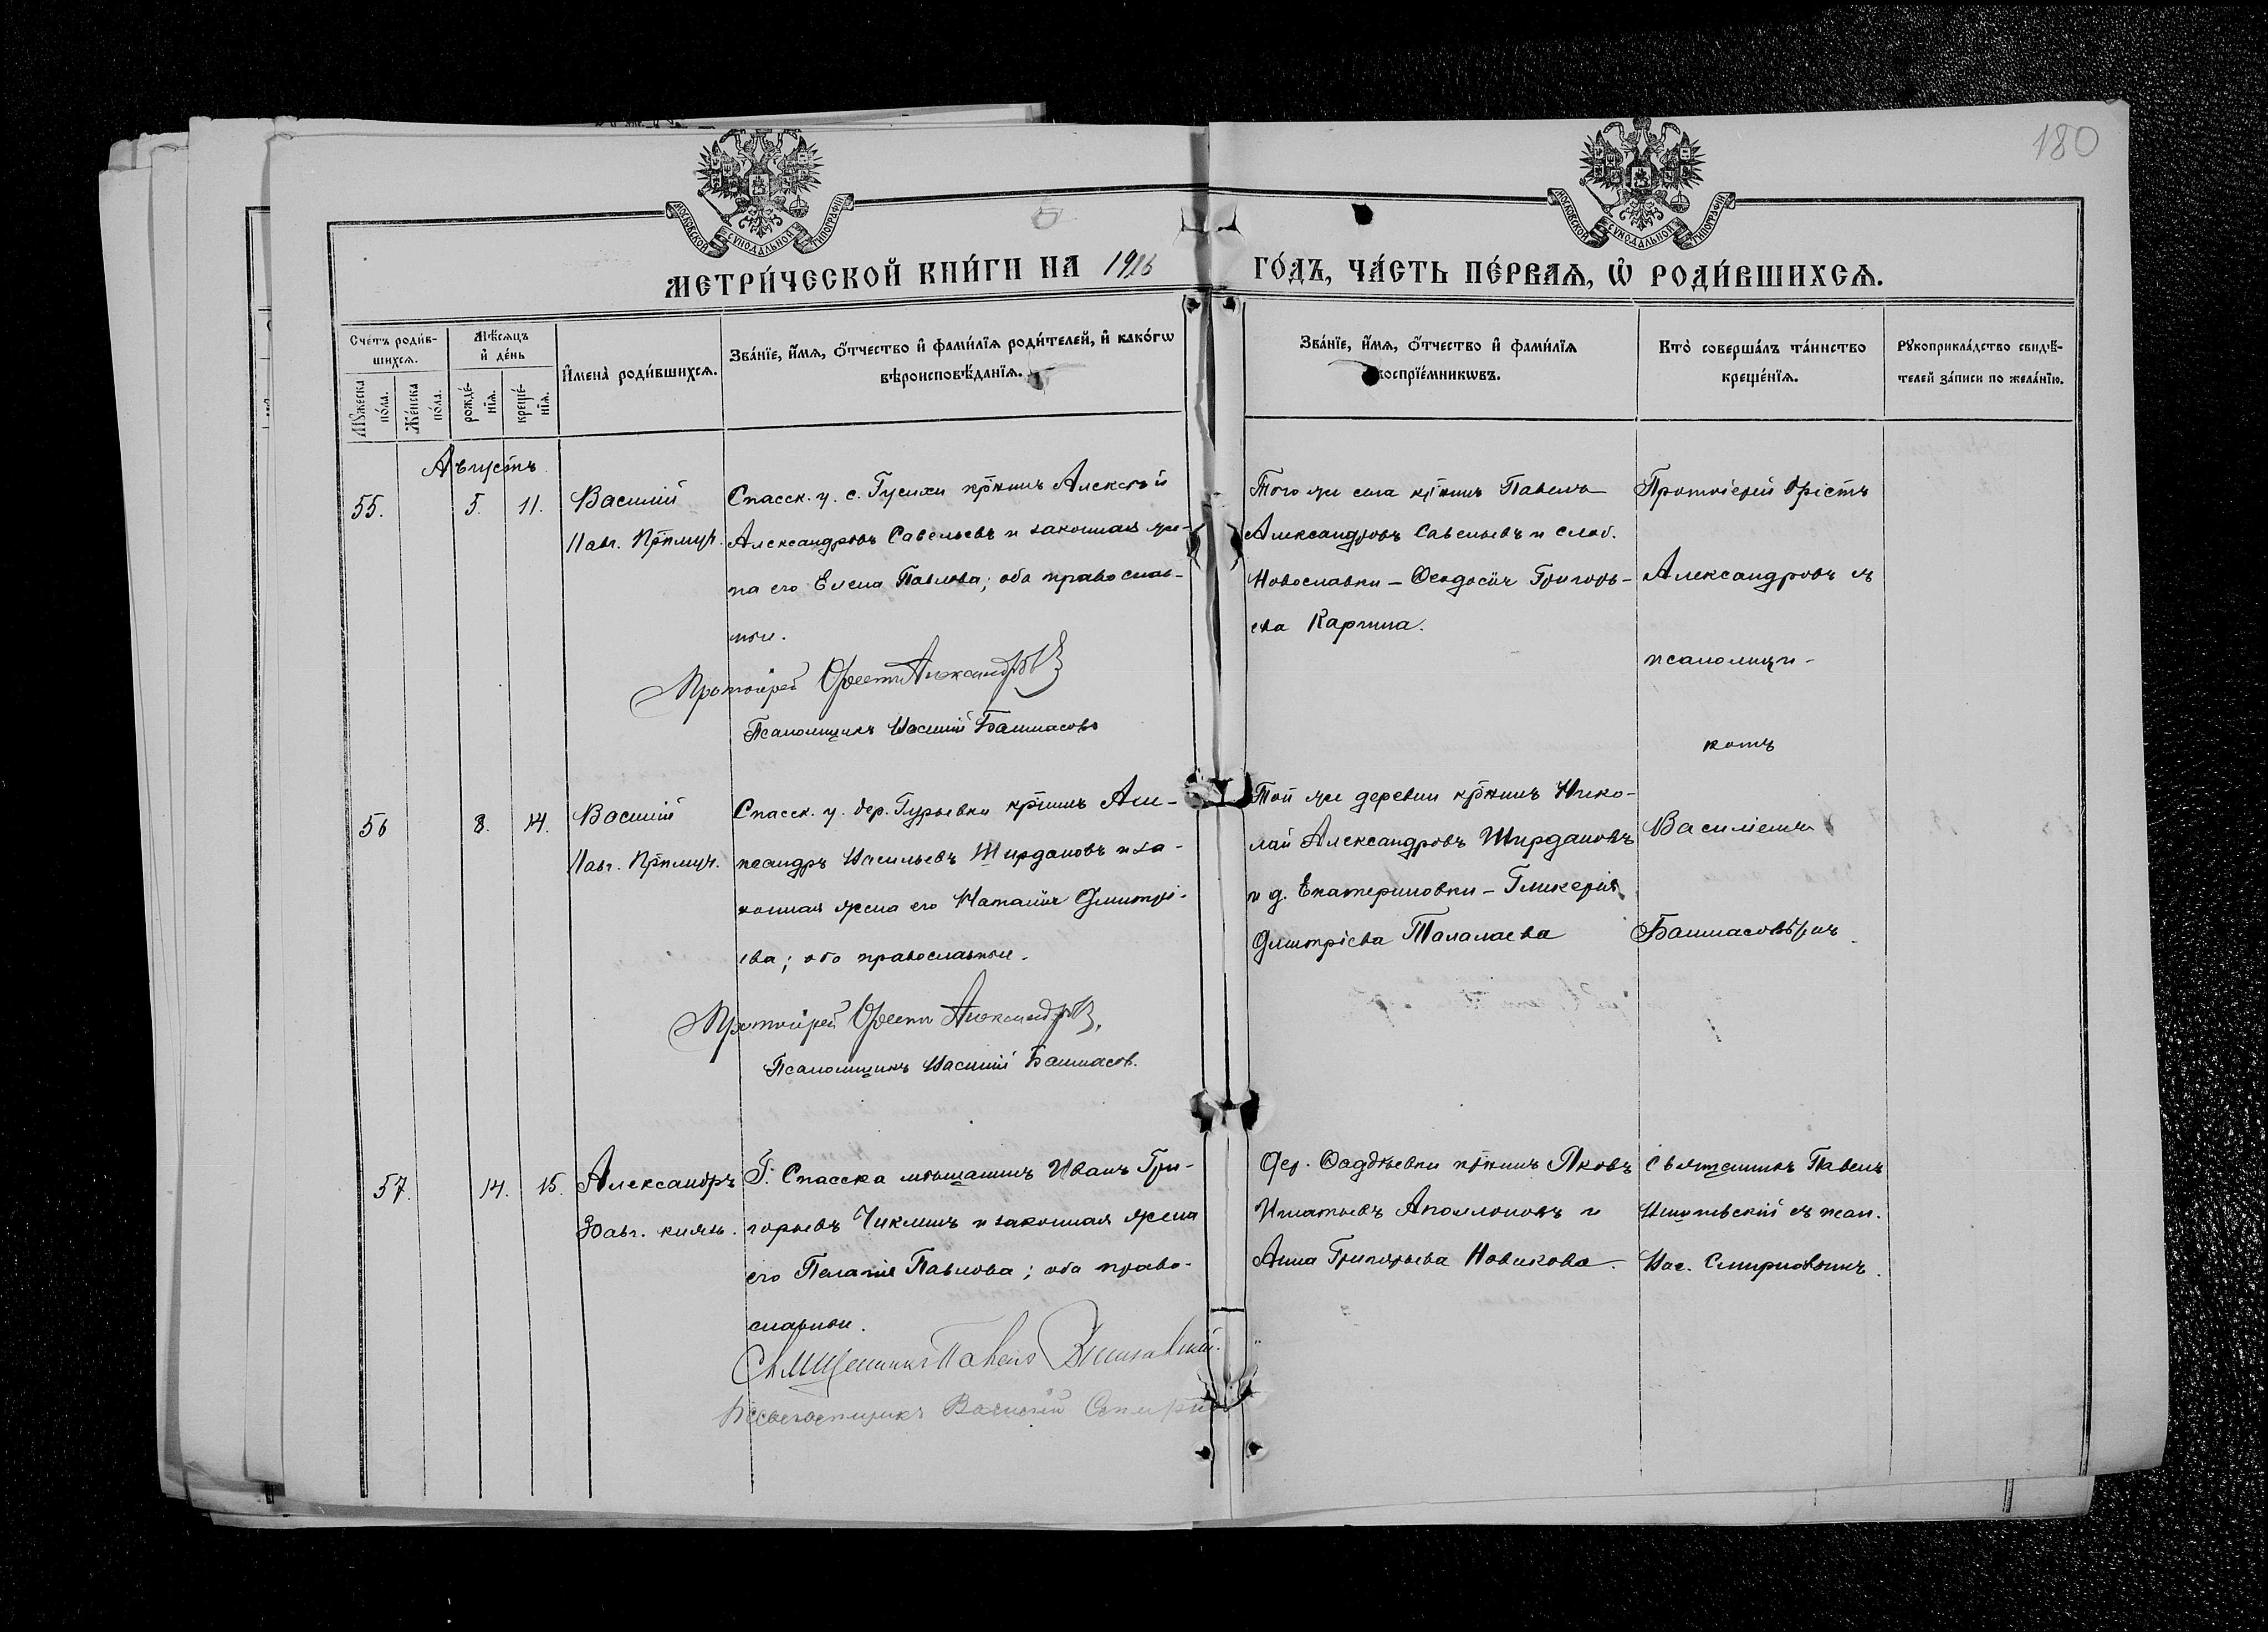 180
МОСКОВСКОЙ СѴНОДАЛЬНОЙ ТИПОГРАФІИ
МОСКОВСКОЙ СѴНОДАЛЬНОЙ ТИПОГРАФІИ
МЕТРИ́ЧЕСКОЙ КНИ́ГИ НА 1916 ГО́ДЪ, ЧА́СТЬ ПЕ́РВАѦ, Ѡ҆ РОДИ́ВШИХСѦ.
Сче́тъ роди́в-
шихсѧ.
Мꙋ́жеска по́ла.
Же́нска по́ла.
Мѣ́сѧцъ
и҆ де́нь
рожде́-
нїѧ.
креще́-
нїѧ.
И҆мена̀ роди́вшихсѧ.
Зва́нїе, и҆́мѧ, ѻ҆́тчество и҆ фами́лїѧ роди́телей, и҆ како́гѡ
вѣроисповѣ́данїѧ.
Зва́нїе, и҆́мѧ, ѻ҆́тчество и҆ фами́лїѧ
воспрїе́мникѡвъ.
Кто̀ соверша́лъ та́инство
креще́нїѧ.
Рꙋкоприкла́дство свидѣ́-
телей за́писи по жела́нїю.
Августъ
55. 5. 11. Василій
11 авг. Прпмуч.
Спасск. у. с. Гусихи кр̄нинъ Алексѣй
Александровъ Савельевъ и законная же-
на его Елена Павлова; оба православ-
ные.
Протоіерей Орестъ Александровъ
Псаломщикъ Василій Башмасовъ
Того же села кр̄нинъ Павелъ
Александровъ Савельевъ и слоб.
Новославки – Ѳеодосія Григорь-
ева Каргина.
Протоіерей Орестъ
Александровъ съ
псаломщи-
комъ
56 8. 14. Василій
11 авг. Прпмуч.
Спасск. у. дер. Гурьевки кр̄нинъ Але-
ксандръ Васильевъ Ширдановъ и за-
конная жена его Наталія Димитрі-
ева; оба православные.
Протоіерей Орестъ Александровъ.
Псаломщикъ Василій Башмасов.
Той же деревни кр̄нинъ Нико-
лай Александровъ Ширдановъ
и д. Екатериновки – Гликерія
Димтріева Талалаева
Василіемъ
Башмасовымъ
57. 14. 15. Александръ
30 авг. князь.
Г. Спасска мѣщанинъ Иванъ Гри-
горьевъ Чиклинъ и законная жена
его Пелагія Павлова; оба право-
славные.
Священникъ Павелъ
Псаломщикъ Василій Смирно
Дер. Ѳаддѣевки кр̄нинъ Яковъ
Игнатьевъ Аполлоновъ и
Анна Григорьева Новикова.
Священникъ Павелъ
съ псал.
Вас. Смирновымъ.